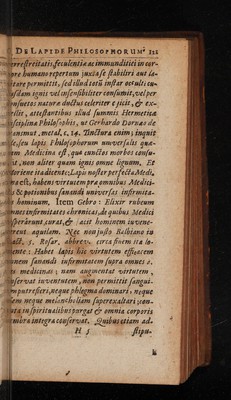 DE LAPIDE PHILOSOPHORUM. 121
terrestreitatis, feculentiæ ac immunditiei in cor-
pore humano repertum juxta se stabiliri aut la-
tere permittit, sed illud totū instar occulti cu-
jusdam ignis vel insensibiliter consumit, vel per
consuetos naturæ ductus celeriter ejicit, & ex-
pellit, attestantibus illud summis Hermetica
disciplina Philosophis, ut Gerhardo Dornæo de
transmut. metal. c. 14. Tinctura enim; inquit
ille, seu lapis Philosophorum universalis qua-
dam Medicina est, qua cunctos morbos consu-
mit, non aliter quam ignis omne lignum. Et
iteriene ita dicente; Lapis noster perfecta Medi-
na est, habens virtutem præ omnibus Medici-
nis & potionibus sanandi universas infirmita-
tes hominum. Item Gebro: Elixir rubeum
omnes infirmitates chronicas, de quibus Medici
desperârunt, curat, & facit hominem juvene-
scere ut aquilam. Nec non justo Balbiano in
tract. 5. Rosar. abbrev. circa finem ita lo-
quente: Habet lapis hic virtutem efficacem
omnem sanandi infirmitatem supra omnes a.
s medicinas: nam augmentat virtutem,
conservat iuventutem, non permittit sangui-
nem putrefieri, neque phlegma dominari, neque
em neque melancholiam superexaltari; con-
tenta in spiritualibus purgat & omnia corporis
membra integra conservat. Quibus etiam ad-
H 5 stipu-